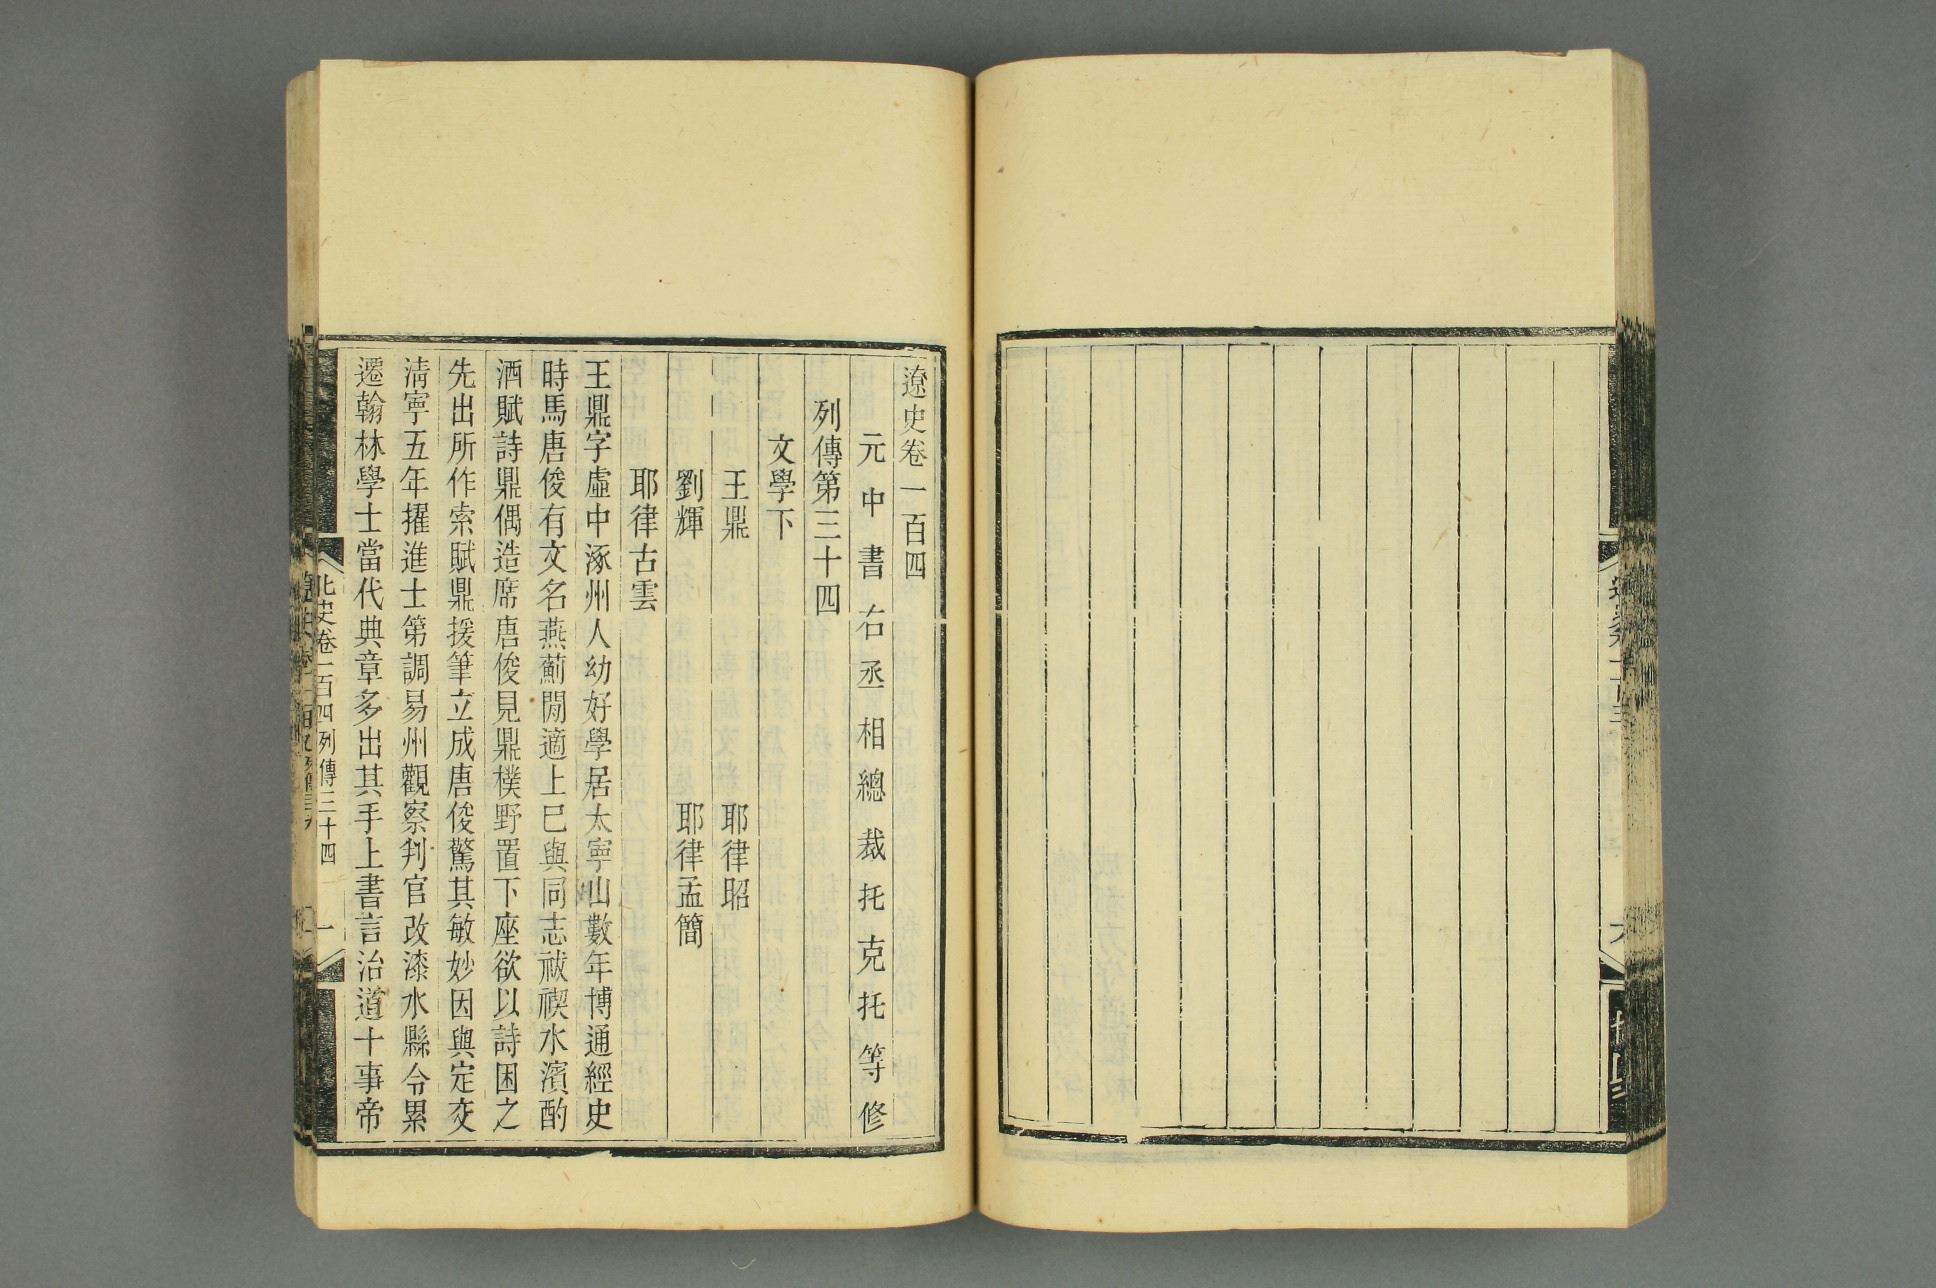 遼史卷一百四
元中書右丞相總裁托克托等修
列傳第三十四
文學下
王鼎 耶律昭
劉輝 耶律孟簡
耶律古雲
王鼎字虛中涿州人幼好學居太寧山數年博通經史
時馬唐俊有文名燕薊閒適上巳與同志祓禊水濱酌
酒賦詩鼎偶造席唐俊見鼎樸野置下座欲以詩困之
先出所作索賦鼎援筆立成唐俊驚其敏妙因與定交
淸寧五年擢進士第調易州觀察判官改淶水縣令累
遷翰林學士當代典章多出其手上書言治道十事帝
史卷一百四列傳三十四 一